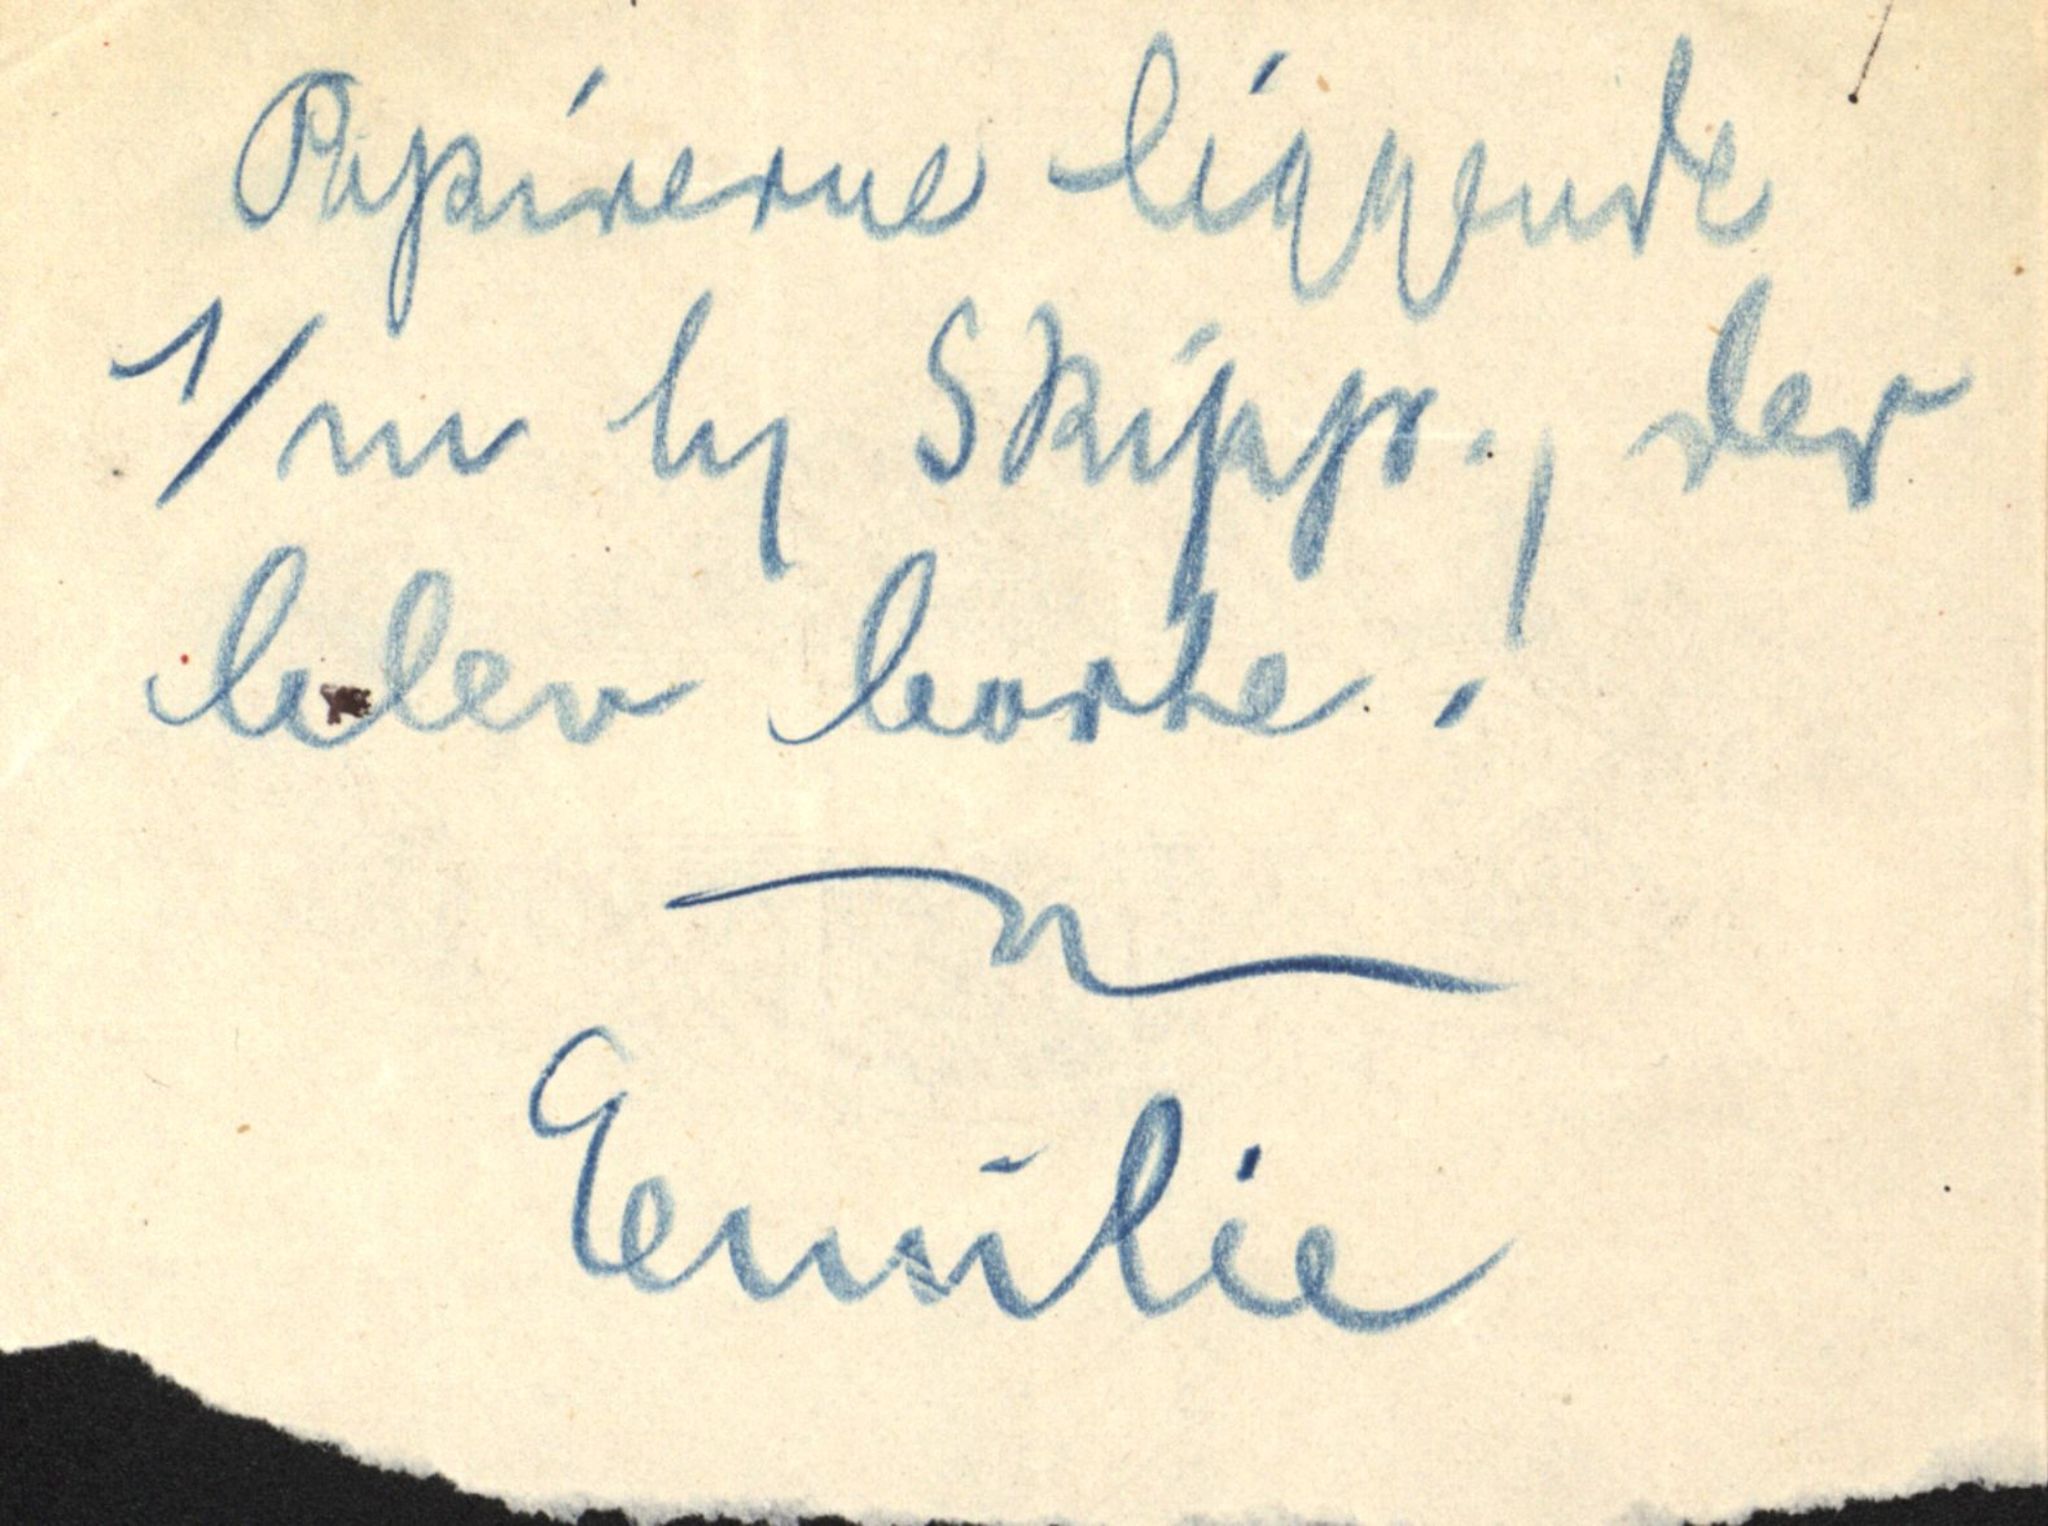 Papirerne liggende
1/m hj Skippr., der
blev borte.
Emilie